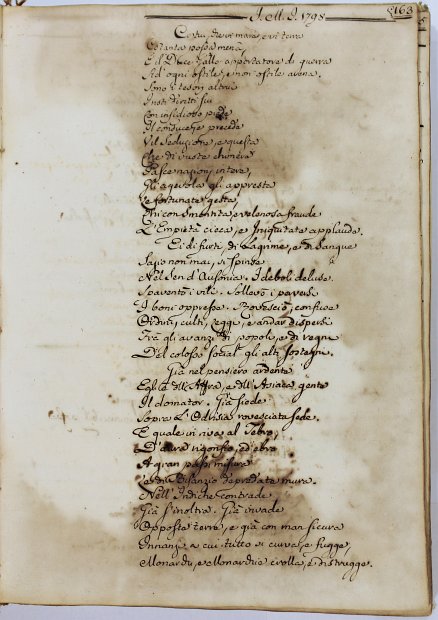 J. M. J. 1798
163
Costui, che in mare, e in terra
Cotanta possa mena,
E il Duce Gallo apportatore di guerra
Ad ogni ostile, e non ostile arena.
Sono i tesori altrui
Diritti sui
Con insidioso piede
Il precede
Vil Seduzione, e questa
Che di vuote
Pasce nazioni intere,
Gli agevola gli appresta
Le fortunate gesta,
Chi con smentita, e velenosa fraude
L'Empietà cieca, e Iniquitate applaude.
Ei di furti, di Lagrime, e di Sangue
Sazio non mai, si spinse
Nel Sen d'Ausonia. I deboli deluse.
Spaventò i vili. Sollevò i
I boni oppresse. Rovesciò, confuse
Ordini, culti, legge, e andar disperse
Fra gli avanzi di popoli, e di regni
Del colosso social gli alti sostegni.
Già nel pensiero ardente
Egli è dell'Affra, e dell'Asiaca gente
Il domator. Già siede
Sopra L'Odrisia rovesciata sede.
E quale in riva al Tebro,
D'aura rigonfio, ed ebro
A gran passi misura
di Bisanzio depredate mura.
Nell'Indiche Contrade
Già s'inoltra. Già invade
Opposta terra, e già con man sicura
Innanzi a cui tutto si curva, e fugge,
Monarchi, e Monarchie crolla, e distrugge.